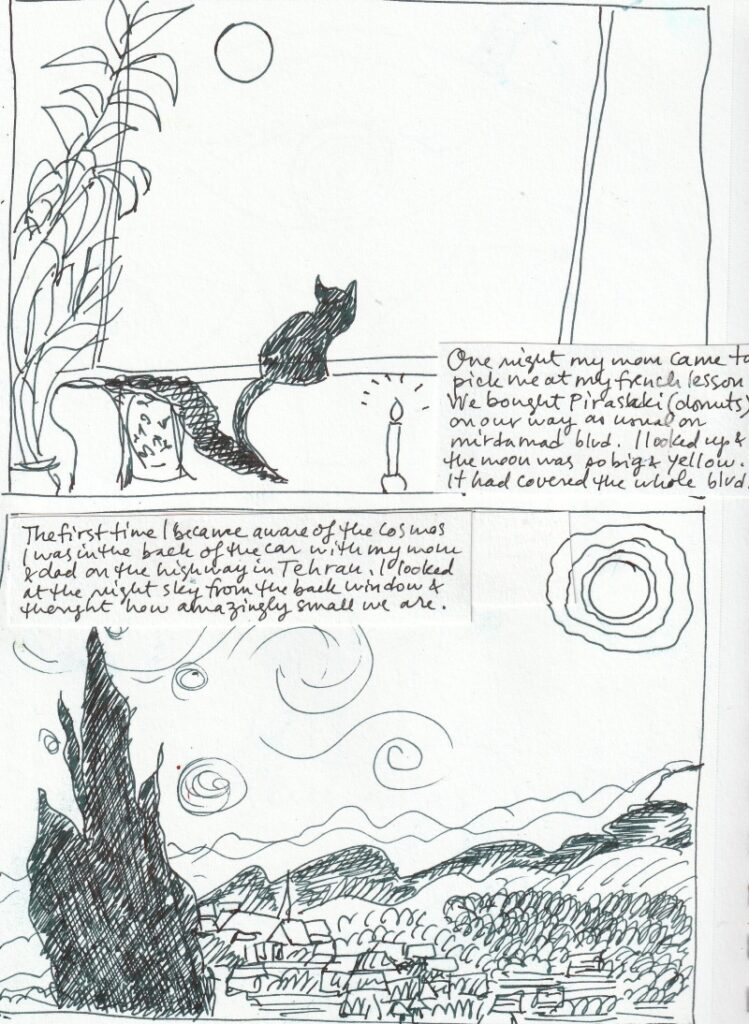 One night my mom came to
pick me at my french lesson
We bought Piraski (donuts)
on our way as usual on
mirdamad blvd. I looked up &
the moon was so big & yellow.
It had covered the whole blvd.
The first time I became aware of the cosmos
I was in the back of the car with my mom
& dad on the highway in Tehran. I looked
at the night sky from the back window &
thought how amazingly small we are.